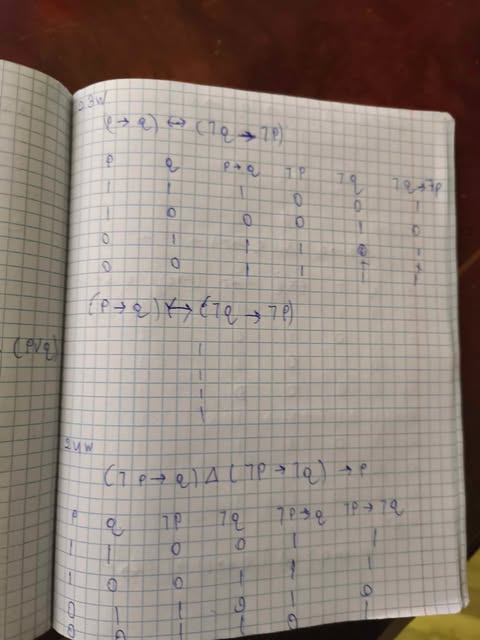 23W
(P→q) ↔ (7q → 7P)
P q P→q 7P 7q 7q→7P
1 1 1 0 0 1
1 0 0 0 1 0
0 1 1 1 0 1
0 0 1 1 1 1
(P→q) ↔ (7q → 7P)
1
(P∨q)
1
1
1
24W
(7P→q) Δ (7P→7q) → P
P q 7P 7q 7P→q 7P→7q
1 1 0 0 1 1
1 0 0 1 1 1
0 1 1 0 1 0
0 0 1 1 0 1